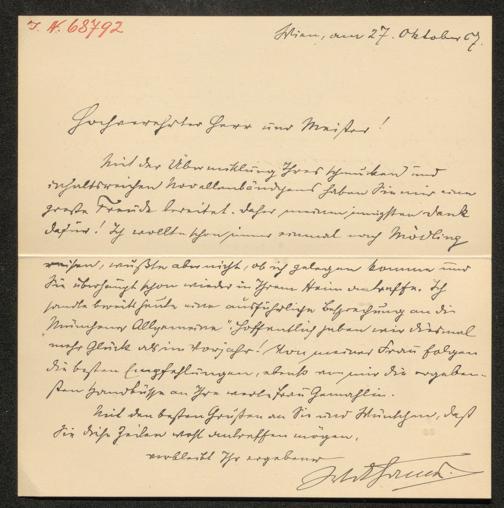 I. N. 68792
Wien, am 27. Oktober 07.
Hochverehrter Herr und Meister!
Mit der Übermittlung Ihres schmucken und
inhaltsreichen Novellenbändchens haben Sie mir eine
große Freude bereitet. Daher meinen innigsten Dank
dafür! Ich wollte schon immer einmal nach Mödling
reisen, wußte aber nicht, ob ich gelegen komme und
Sie überhaupt schon wieder in Ihrem Heim antreffe. Ich
sandte bereits heute eine ausführliche Besprechung an die
"Münchener Allgemeine". Hoffentlich haben wir diesmal
mehr Glück als im Vorjahr! Von meiner Frau folgen
die besten Empfehlungen, ebenso von mir die ergeben-
sten Handküsse an Ihre werte Frau Gemahlin.
Mit den besten Grüßen an Sie und Wünschen, daß
Sie diese Zeilen wohl antreffen mögen,
verbleibt Ihr ergebener